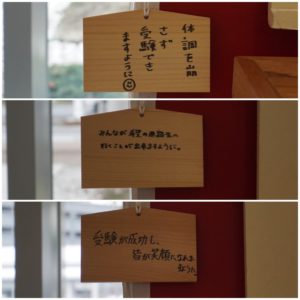 体調を崩
さず
受験でき
ますように
みんなが希望の進路先へ
行くことが出来ますように。
受験が成功し、
皆が笑顔になれま
すように。